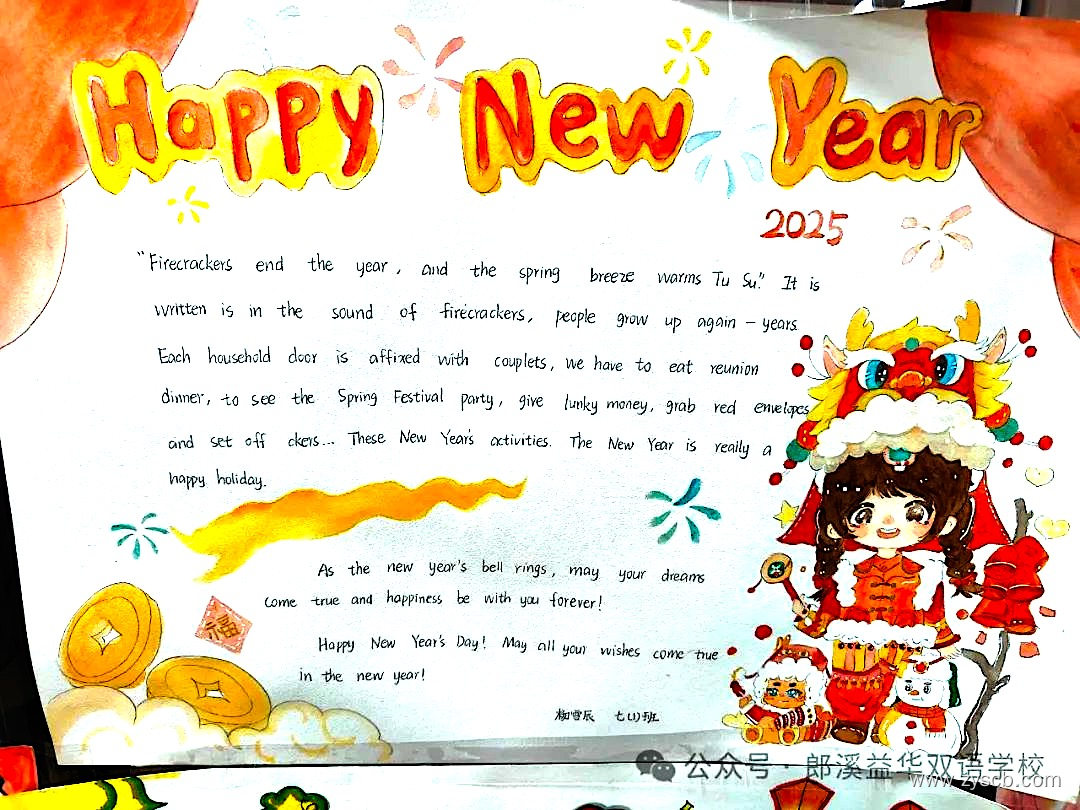 Happy New Year
2025
"Firecrackers end the year, and the spring breeze warms Tu Su." It is
written is in the sound of firecrackers, people grow up again - years.
Each household door is affixed with couplets, we have to eat reunion
dinner, to see the Spring Festival party, give lunky money, grab red envelopes
and set off ckers... These New Year's activities. The New Year is really a
happy holiday.
As the new year's bell rings, may your dreams
come true and happiness be with you forever!
Happy New Year's Day! May all your wishes come true
In the new year!
福
七(1)班
公众号·郎溪益华双语学校
www.zyscb.com